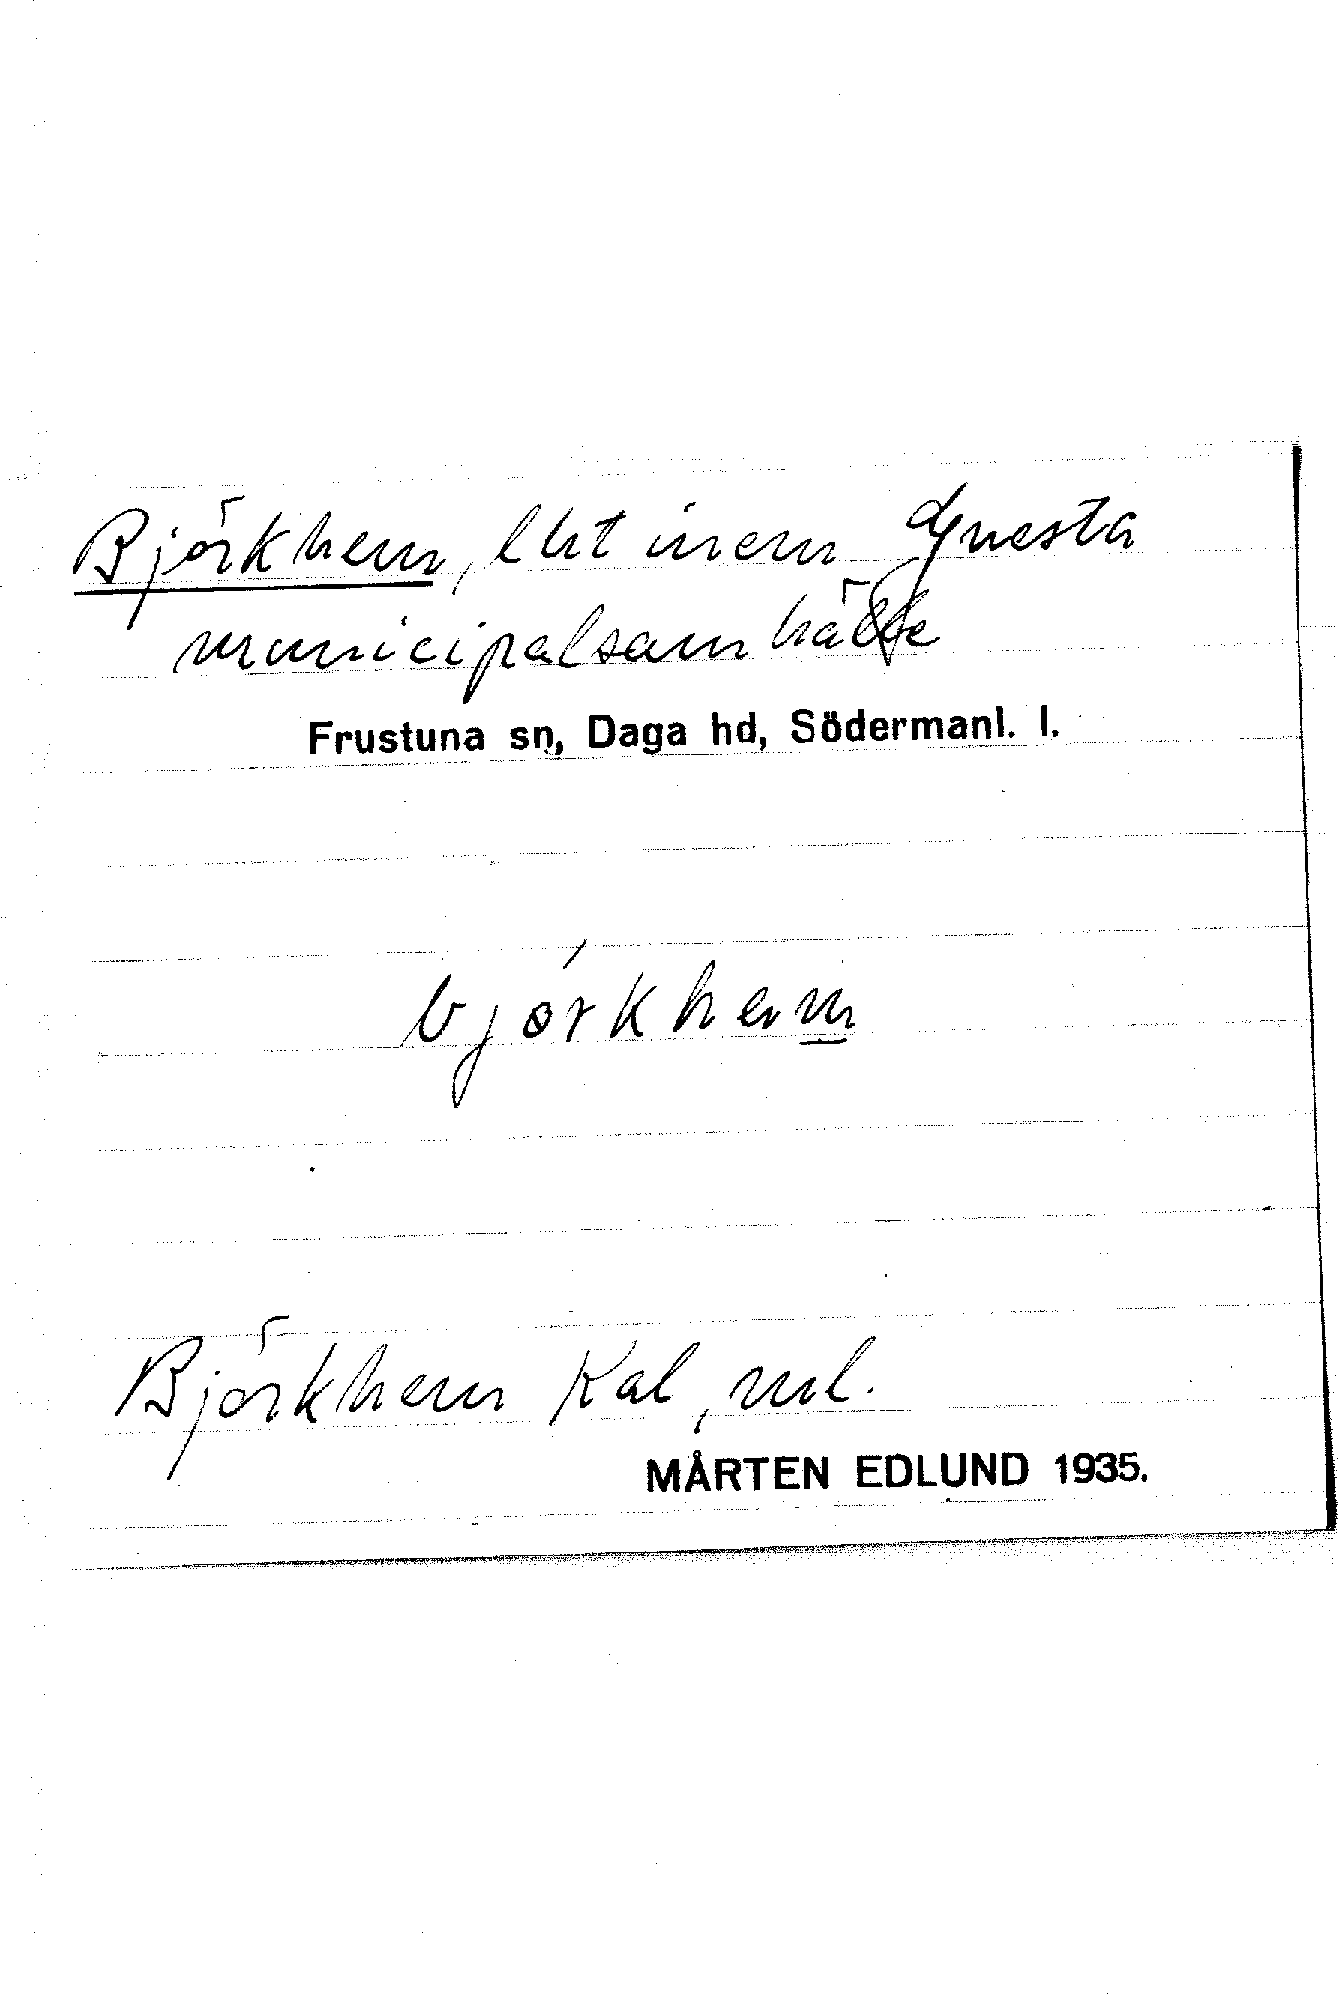 Björkhem, lht inom Gnesta
municipalsamhälle
Frustuna sn, Daga hd, Södermanl. l.
bjórkhem
Björkhem Kal, ml.
MÅRTEN EDLUND 1935.